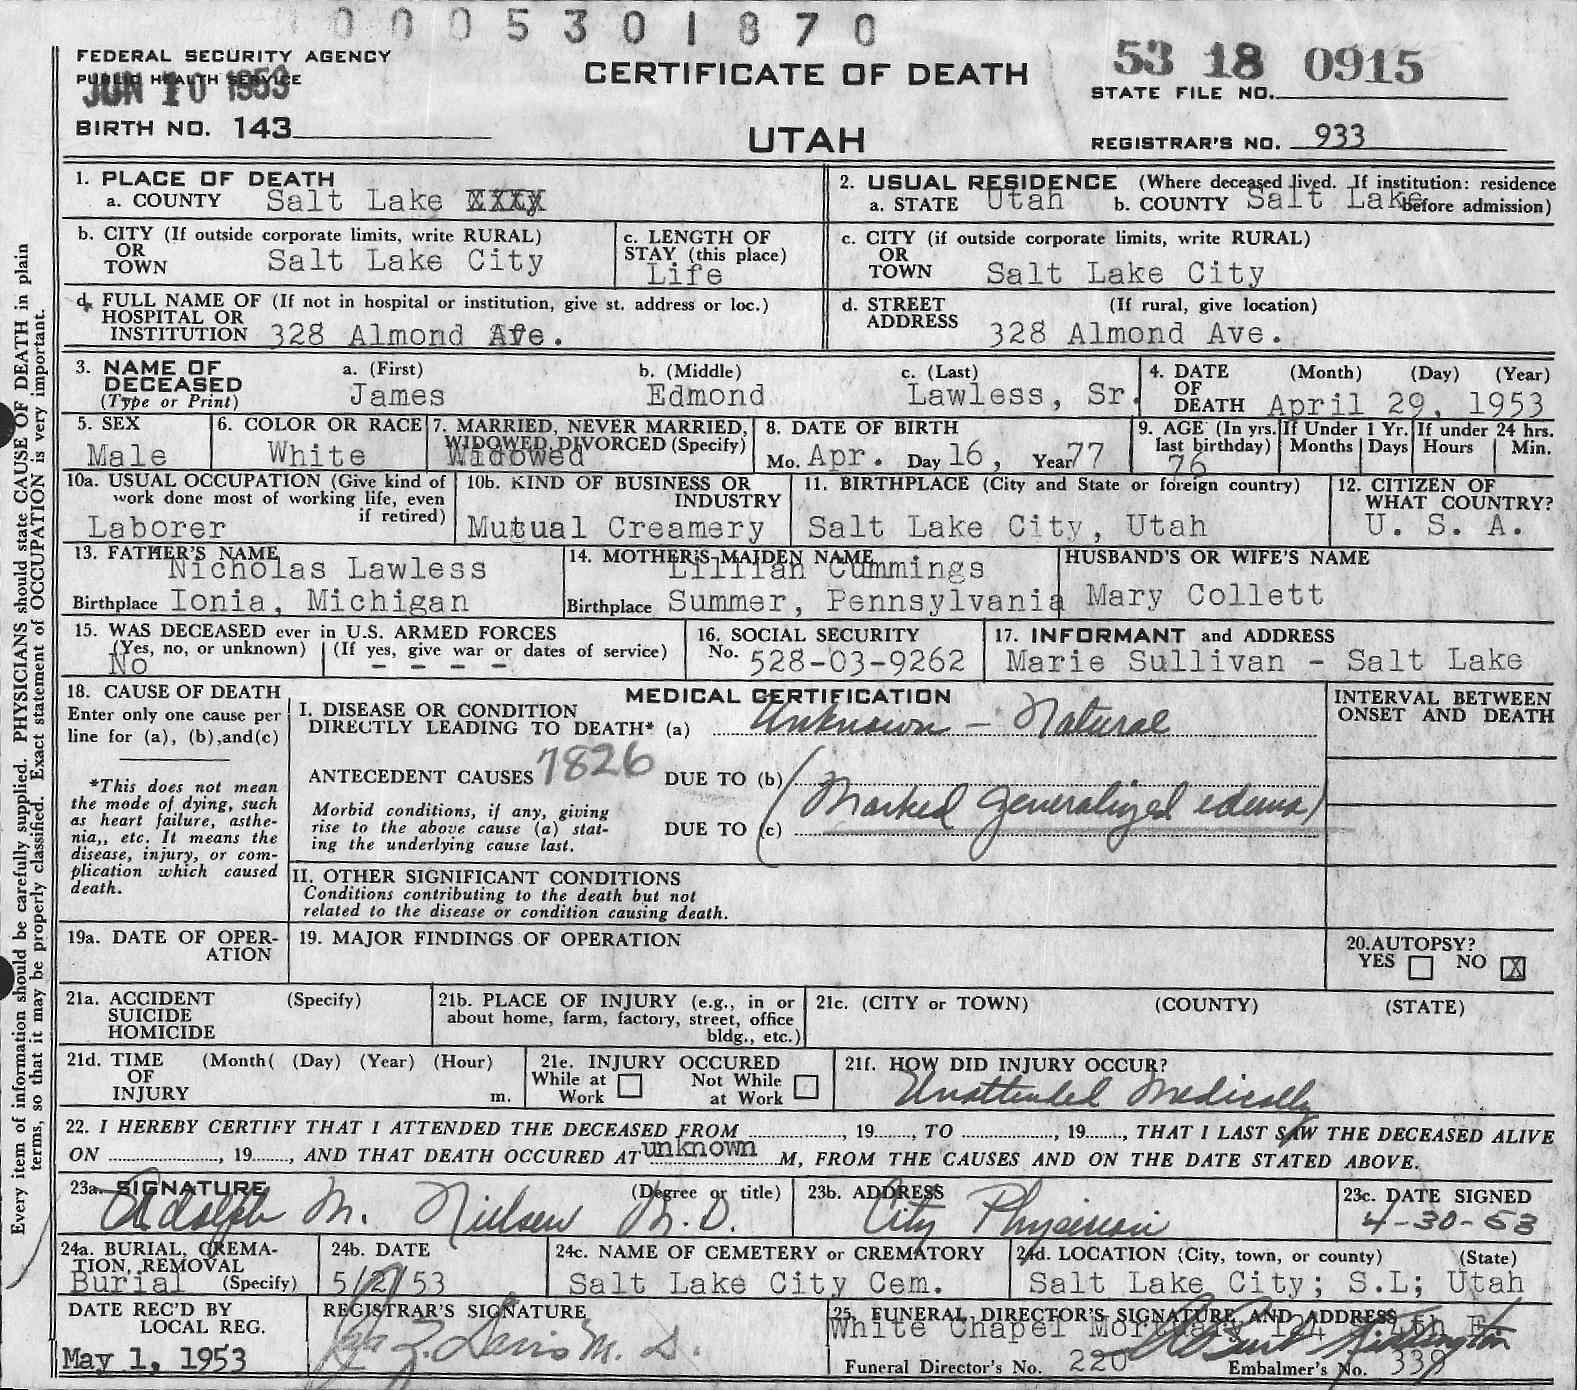 0005301870
FEDERAL SECURITY AGENCY
PUBLIC HEALTH SERVICE
JUN 10 1953
BIRTH NO. 143
CERTIFICATE OF DEATH
UTAH
53 18 0915
STATE FILE NO.
REGISTRAR'S NO. 933
1. PLACE OF DEATH
a. COUNTY Salt Lake XXXX
2. USUAL RESIDENCE (Where deceased lived. If institution: residence before admission)
a. STATE Utah b. COUNTY Salt Lake
b. CITY (If outside corporate limits, write RURAL)
OR
TOWN Salt Lake City
c. LENGTH OF
STAY (this place)
Life
c. CITY (if outside corporate limits, write RURAL)
OR
TOWN Salt Lake City
d. FULL NAME OF (If not in hospital or institution, give st. address or loc.)
HOSPITAL OR
INSTITUTION 328 Almond Ave.
d. STREET (If rural, give location)
ADDRESS 328 Almond Ave.
3. NAME OF
DECEASED
(Type or Print)
a. (First) b. (Middle) c. (Last)
James Edmond Lawless, Sr.
4. DATE (Month) (Day) (Year)
OF
DEATH April 29, 1953
5. SEX
Male
6. COLOR OR RACE
White
7. MARRIED, NEVER MARRIED,
WIDOWED, DIVORCED (Specify)
Widowed
8. DATE OF BIRTH
Mo. Apr. Day 16, Year 77
9. AGE (In yrs.
last birthday)
76
If Under 1 Yr.
Months Days
If under 24 hrs.
Hours Min.
10a. USUAL OCCUPATION (Give kind of
work done most of working life, even
if retired)
Laborer
10b. KIND OF BUSINESS OR
INDUSTRY
Mutual Creamery
11. BIRTHPLACE (City and State or foreign country)
Salt Lake City, Utah
12. CITIZEN OF
WHAT COUNTRY?
U. S. A.
13. FATHER'S NAME
Nicholas Lawless
Birthplace Ionia, Michigan
14. MOTHER'S MAIDEN NAME
Lillian Cummings
Birthplace Summer, Pennsylvania
HUSBAND'S OR WIFE'S NAME
Mary Collett
15. WAS DECEASED ever in U.S. ARMED FORCES
(Yes, no, or unknown) (If yes, give war or dates of service)
No - - - -
16. SOCIAL SECURITY
No. 528-03-9262
17. INFORMANT and ADDRESS
Marie Sullivan - Salt Lake
18. CAUSE OF DEATH
Enter only one cause per
line for (a), (b), and (c)
*This does not mean
the mode of dying, such
as heart failure, asthe-
nia,, etc. It means the
disease, injury, or com-
plication which caused
death.
MEDICAL CERTIFICATION
I. DISEASE OR CONDITION
DIRECTLY LEADING TO DEATH* (a) Unknown - Natural
ANTECEDENT CAUSES 7826 DUE TO (b)
Morbid conditions, if any, giving
rise to the above cause (a) stat-
ing the underlying cause last.
(Marked generalized edema)
DUE TO (c)
INTERVAL BETWEEN
ONSET AND DEATH
II. OTHER SIGNIFICANT CONDITIONS
Conditions contributing to the death but not
related to the disease or condition causing death.
19a. DATE OF OPER-
ATION
19. MAJOR FINDINGS OF OPERATION
20. AUTOPSY?
YES NO X
21a. ACCIDENT (Specify)
SUICIDE
HOMICIDE
21b. PLACE OF INJURY (e.g., in or
about home, farm, factory, street, office
bldg., etc.)
21c. (CITY or TOWN) (COUNTY) (STATE)
21d. TIME (Month( (Day) (Year) (Hour)
OF
INJURY m.
21e. INJURY OCCURED
While at Work Not While at Work
21f. HOW DID INJURY OCCUR?
Unattended Medically
22. I HEREBY CERTIFY THAT I ATTENDED THE DECEASED FROM , 19 , TO , 19 , THAT I LAST SAW THE DECEASED ALIVE
ON , 19 , AND THAT DEATH OCCURED AT unknown M, FROM THE CAUSES AND ON THE DATE STATED ABOVE.
23a. SIGNATURE (Degree or title)
Adolph M. Nielsen M.D.
23b. ADDRESS
City Physician
23c. DATE SIGNED
4-30-53
24a. BURIAL, CREMA-
TION, REMOVAL
Burial (Specify)
24b. DATE
5/2/53
24c. NAME OF CEMETERY or CREMATORY
Salt Lake City Cem.
24d. LOCATION (City, town, or county) (State)
Salt Lake City; S.L; Utah
DATE REC'D BY
LOCAL REG.
May 1, 1953
REGISTRAR'S SIGNATURE
Davis M. D.
25. FUNERAL DIRECTOR'S SIGNATURE AND ADDRESS
White Chapel Mortuary 124 4th E.
Funeral Director's No. 220 Embalmer's No. 339
Every item of information should be carefully supplied. PHYSICIANS should state CAUSE OF DEATH in plain
terms, so that it may be properly classified. Exact statement of OCCUPATION is very important.